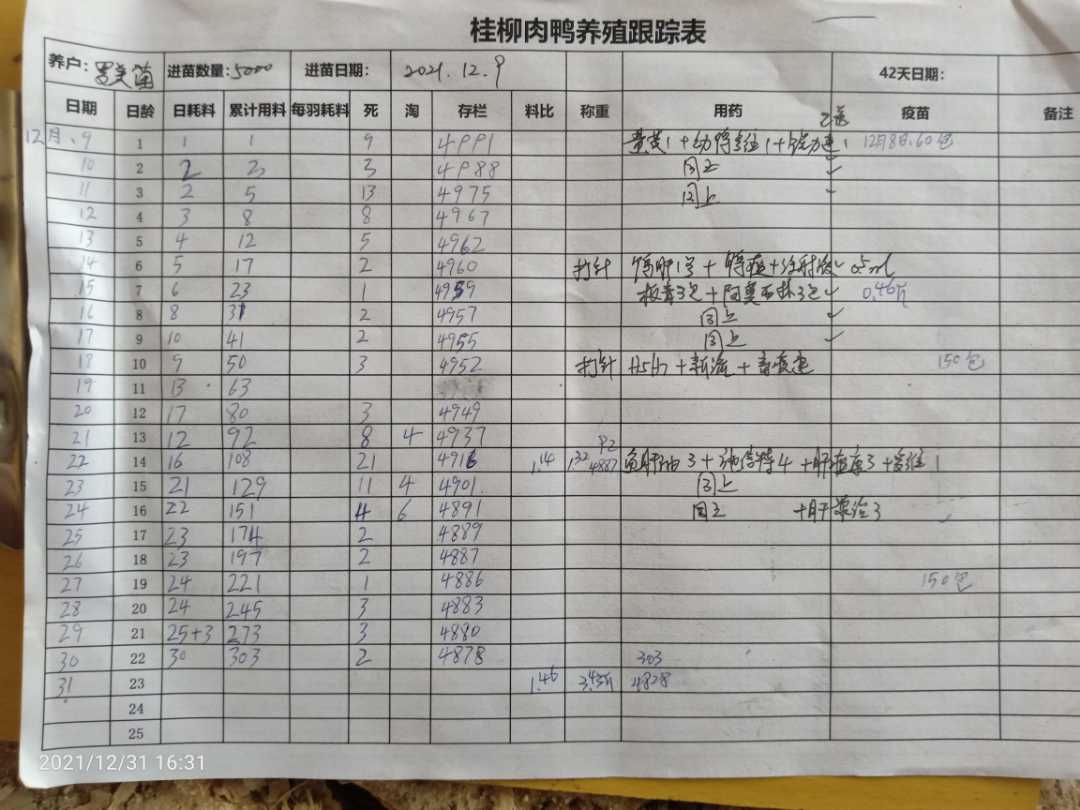 桂柳肉鸭养殖跟踪表
养户： 进苗数量：5000 进苗日期： 2021.12.9 42天日期：
日期 日龄 日耗料 累计用料 每羽耗料 死 淘 存栏 料比 称重 用药 疫苗 备注
12月.9 1 1 1 9 4991 12月8日.60包
10 2 2 3 3 4988 同上 ✓
11 3 2 5 13 4975 同上 ✓
12 4 3 8 8 4967
13 5 4 12 5 4962
14 6 5 17 2 4960 打针
15 7 6 23 1 4959 0.46斤
16 8 8 31 2 4957 同上 ✓
17 9 10 41 2 4955 同上 ✓
18 10 9 50 3 4952 打针 150包
19 11 13 63
20 12 17 80 3 4949
21 13 12 92 8 4 4937
22 14 16 108 21 4916 1.14 1.32 4887
23 15 21 129 11 4 4901 同上
24 16 22 151 4 6 4891 同上
25 17 23 174 2 4889
26 18 23 197 2 4887
27 19 24 221 1 4886 150包
28 20 24 245 3 4883
29 21 25+3 273 3 4880
30 22 30 303 2 4878 303
31 23 1.46 3.43斤 4828
24
25
2021/12/31 16:31